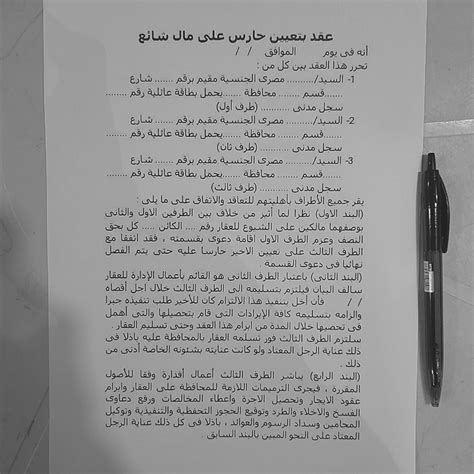 عقد بتعيين حارس على مال شائع
أنه فى يوم الموافق / /
تحرر هذا العقد بين كل من :
1- السيد/.......... مصرى الجنسية مقيم برقم ....... شارع
.......قسم ....... محافظة .......يحمل بطاقة عائلية رقم ........
سجل مدنى ........... (طرف أول)
2- السيد/.......... مصرى الجنسية مقيم برقم ....... شارع
.......قسم ....... محافظة .......يحمل بطاقة عائلية رقم ........
سجل مدنى ........... (طرف ثان)
3- السيد/.......... مصرى الجنسية مقيم برقم ....... شارع
.......قسم ....... محافظة .......يحمل بطاقة عائلية رقم ........
سجل مدنى ........... (طرف ثالث)
يقر جميع الأطراف بأهليتهم للتعاقد والاتفاق على ما يلى :
(البند الاول) نظرا لما أثير من خلاف بين الطرفين الاول والثانى
بوصفهما مالكين على الشيوع للعقار رقم .... الكائن .... كل بحق
النصف وعزم الطرف الاول إقامة دعوى بقسمته ، فقد اتفقا مع
الطرف الثالث على تعيين الاخير حارسا عليه حتى يتم الفصل
نهائيا فى دعوى القسمة
(البند الثانى) باعتبار الطرف الثانى هو القائم بأعمال الإدارة للعقار
سالف البيان فيلتزم بتسليمه الى الطرف الثالث خلال اجل أقصاه
/ / فأن أخل بتنفيذ هذا الالتزام كان للأخير طلب تنفيذه جبرا
والزامه بتسليمه كافة الإيرادات التى قام بتحصيلها والتى أهمل
فى تحصيلها خلال المدة من ابرام هذا العقد وحتى تسليم العقار .
سلتزم الطرف الثالث فور تسلمه العقار بالمحافظة عليه باذلا فى
ذلك عناية الرجل المعتاد ولو كانت عنايته بشئونه الخاصة أدنى من
ذلك .
(البند الرابع) يباشر الطرف الثالث أعمال أقدارة وفقا للأصول
المقررة ، فيجرى الترميمات اللازمة للمحافظة على العقار وابرام
عقود الايجار وتحصيل الاجرة واعطاء المخالصات ورفع دعاوى
الفسخ والاخلاء والطرد وتوقيع الحجوز التحفظية والتنفيذية وتوكيل
المحامين وسداد الرسوم والعوائد ، باذلا فى كل ذلك عناية الرجل
المعتاد على النحو المبين بالبند السابق .